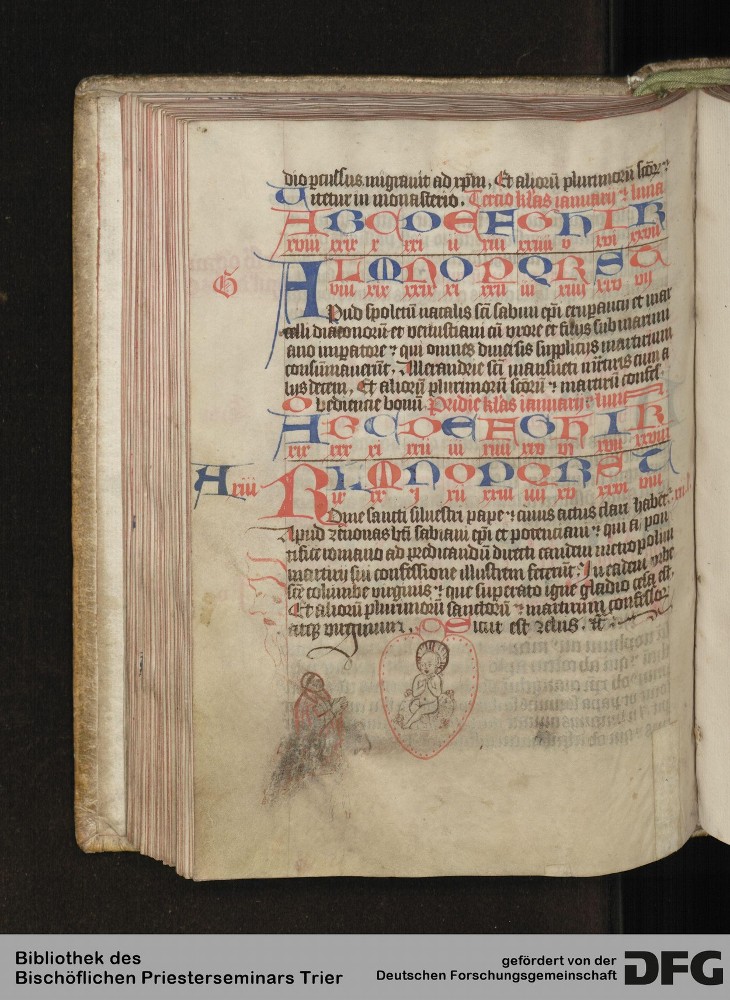 dio ꝑcussus migrauit ad xp̄m, Et alioꝝ plurimoꝝ sctōꝝ ⁊
itetur in monasterio. Tercio kl̄as ianuarij ⁊ luna
A B C D E F G H I K
xviii xxix x xxi ii xiii xxiiii v xvi xxvii
G
L M N O P Q R S T
viii xix xxix xi xxii iii xiiii xxv vii
APud spoletū natalis sc̄i sabini ep̄i
celli diaconorū et venustiani cū vxore et filijs sub maximi
ano imꝑatore ⁊ qui omnes diuersis supplicijs martirium
consūmauerūt. Allexandrie sc̄i mansueti
lijs decem, Et alioꝝ plurimoꝝ sc̄oꝝ ⁊ martirū confes.
Obediencie bonū Pridie kl̄as ianuarij ⁊ luna
A B C D E F G H I K
xix xxx xi xxii iii xiiii xxv vi xvii xxviii
A xiii
L M N O P Q R S T
ix xx i xii xxiii iiii xv xxvi viii
ROme sancti siluestri pape ⁊ cuius actus clari habēt᷒
Apud zenonas bt̄i sabiani ep̄i et potenciani ⁊ qui a pon
tifice romano ad predicandū directi eandem metropolim
martirij sui confessione illustrem fecerūt. In eadem vrbe
sc̄e columbe virginis ⁊ que superato igne gladio cesa est.
Et alioꝝ plurimoꝝ sanctorū ⁊ martirum confessoꝝ
atqꝫ virginum.
Bibliothek des
Bischöflichen Priesterseminars Trier
gefördert von der
Deutschen Forschungsgemeinschaft
DFG